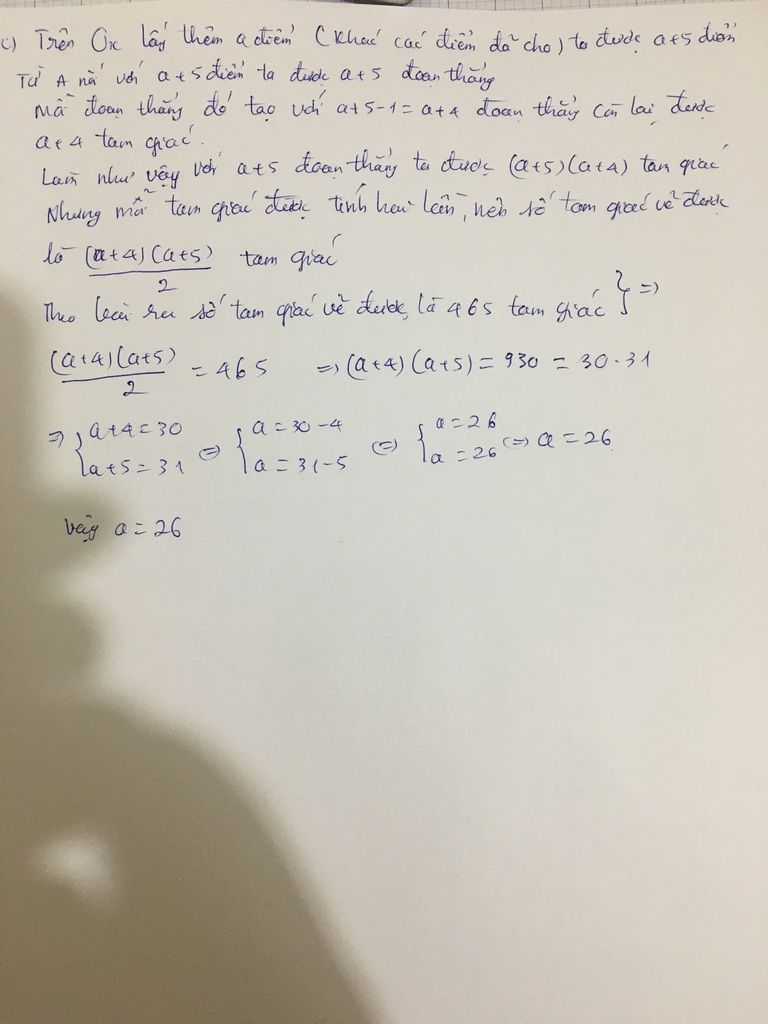 c) Trên Ox lấy thêm a điểm (khác các điểm đã cho) ta được a+5 điểm
Từ A nối với a+5 điểm ta được a+5 đoạn thẳng
Mỗi đoạn thẳng đó tạo với a+5-1=a+4 đoạn thẳng còn lại, được
a+4 tam giác.
Làm như vậy với a+5 đoạn thẳng ta được (a+5)(a+4) tam giác
Nhưng mỗi tam giác được tính hai lần, nên số tam giác vẽ được
là (a+4)(a+5)/2 tam giác
Theo bài ra số tam giác vẽ được là 465 tam giác } =>
(a+4)(a+5)/2 = 465 => (a+4)(a+5) = 930 = 30.31
=> { a+4=30 <=> { a=30-4 <=> { a=26
a+5=31 a=31-5 a=26 <=> a=26
vậy a=26